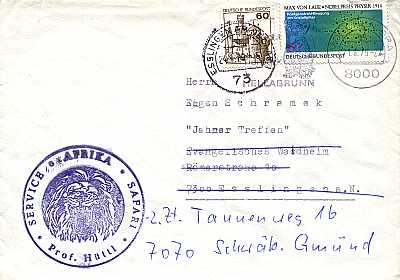 60
DEUTSCHE BUNDESPOST
MAX VON LAUE · NOBELPREIS PHYSIK 1914
DEUTSCHE BUNDESPOST
ESSLINGEN
73
8000
HELLABRUNN
Herrn
Eugen Schramek
"Jahner Treffen"
Evangelisches Waldheim
Römerstraße
7300 Esslingen a.N.
z.Zt. Tannenweg 16
7070 Schwäb. Gmünd
SERVICE * AFRIKA * SAFARI
Prof. Hüttl